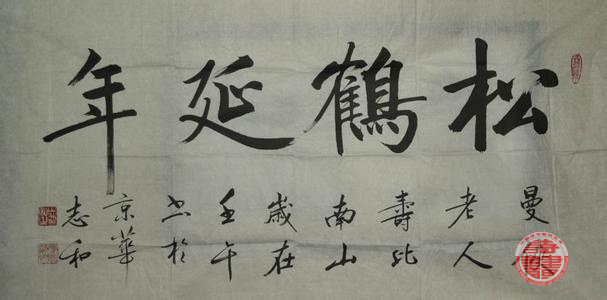 松鶴延年
曼
老人
壽比
南山
歲在
壬午
书於
京華
志和